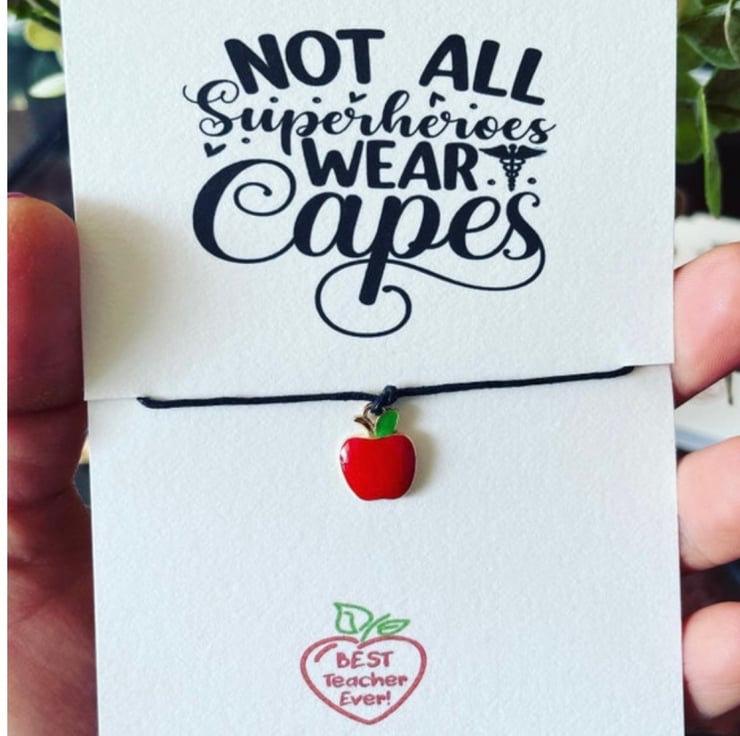 NOT ALL
Superheroes
WEAR
Capes
BEST
Teacher
Ever!